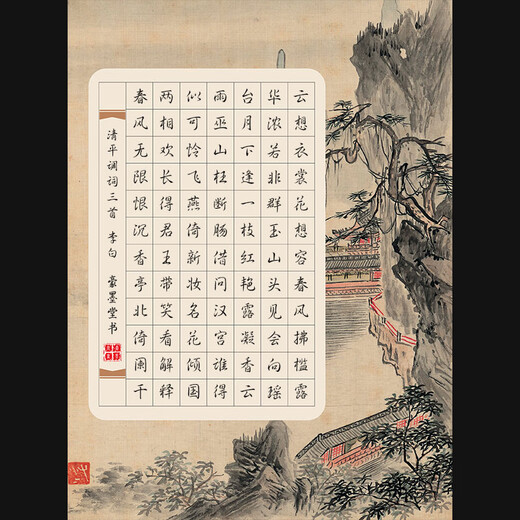 云想衣裳花想容春风拂槛露
华浓若非群玉山头见会向瑶
台月下逢一枝红艳露凝香云
雨巫山枉断肠借问汉宫谁得
似可怜飞燕倚新妆名花倾国
两相欢长得君王带笑看解释
春风无限恨沉香亭北倚阑干
清平调词三首 李白 豪墨堂书